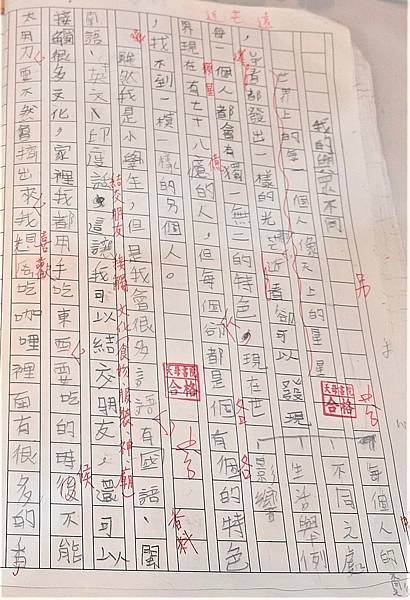 每個人的
不同之處
生活舉例
我的與眾不同
世界上的每一個人像天上的星星
看都發出一樣的光芒近看卻可以發現
每一個人都會有獨一無二的特色，現在世
界現在有七十八億的人，但每個卻都是個有個的特色
，找不到一模一樣的另個人。
雖然我是小學生，但是我會很多語有國語、閩
南語、英文、印度話這讓我可以結交朋友，還可以
接觸很多文化，家裡我都用手吃東西要吃的時後不能
太用力要不然會擠出來，我想吃咖哩裡面有很多的事
合格
合格
各
各
億
結交朋友 接觸文化
食物、服裝、神、廟
香料
候
喜歡